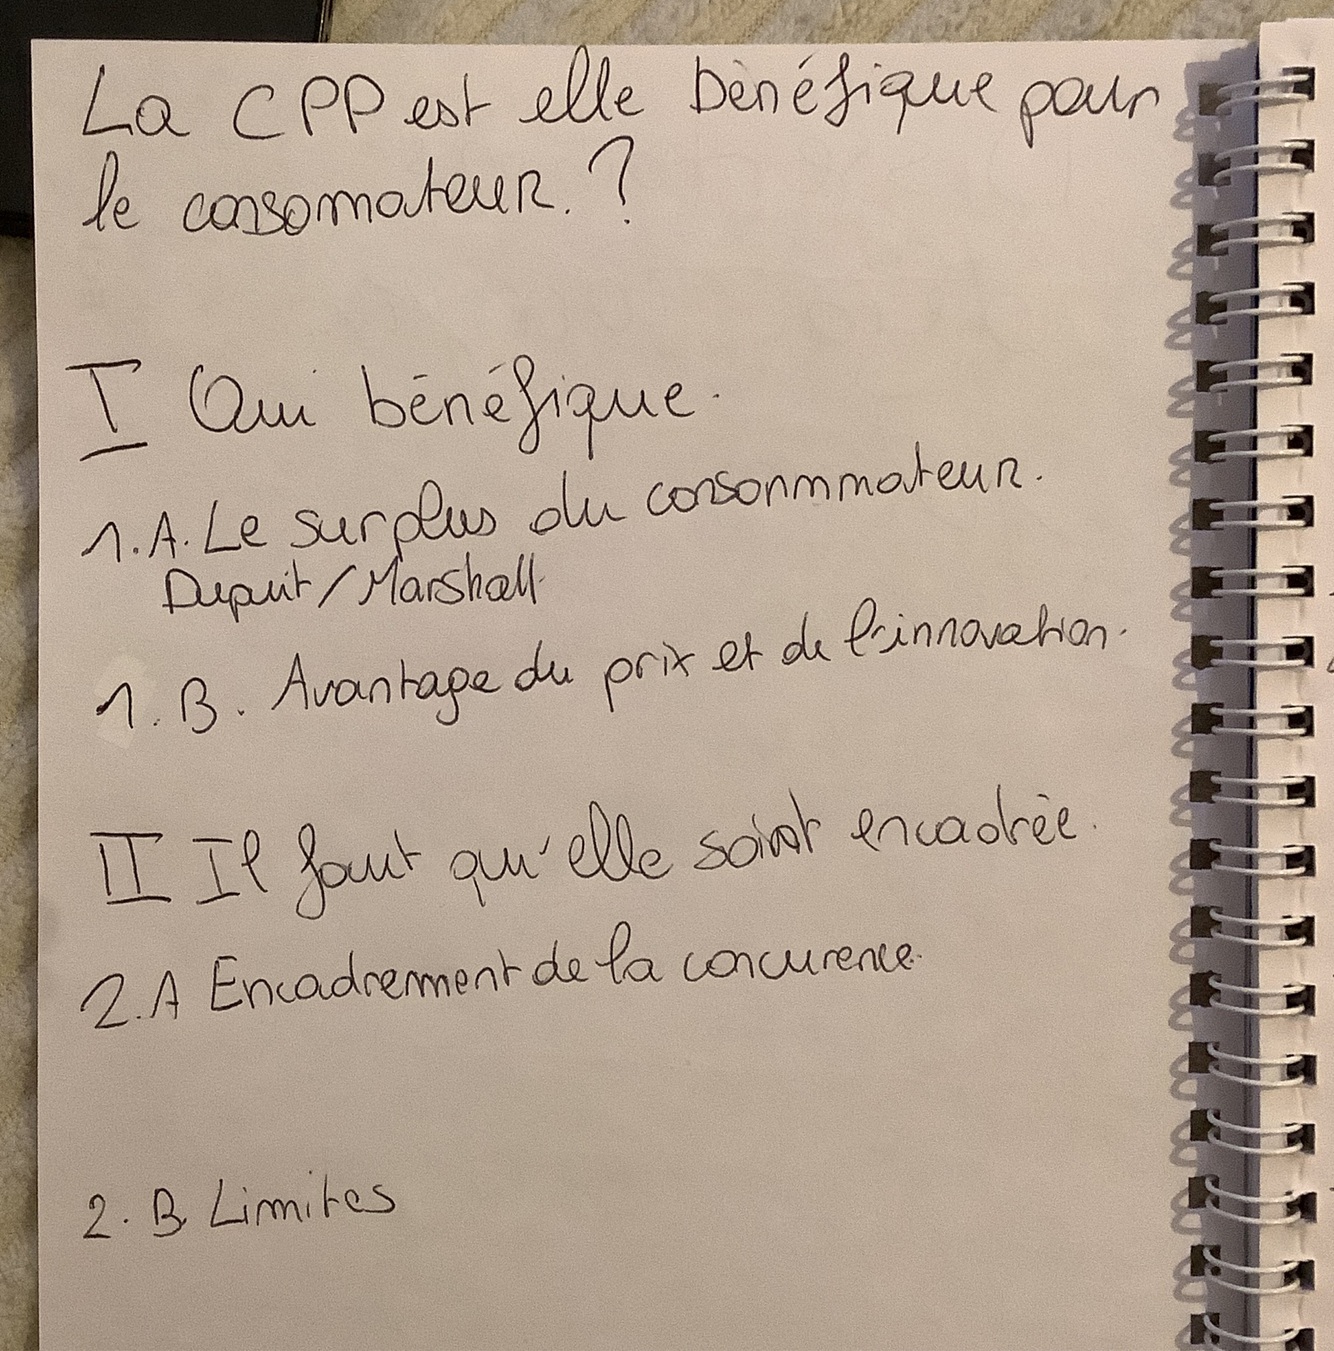 La CPP est elle bénéfique pour
le consomateur. ?
I Oui bénéfique.
1.A. Le surplus du consonmmateur.
Dupuit / Marshall.
1. B. Avantage du prix et de l'innovation.
II Il faut qu'elle soint encadrée.
2.A Encadrement de la concurence.
2. B. Limites